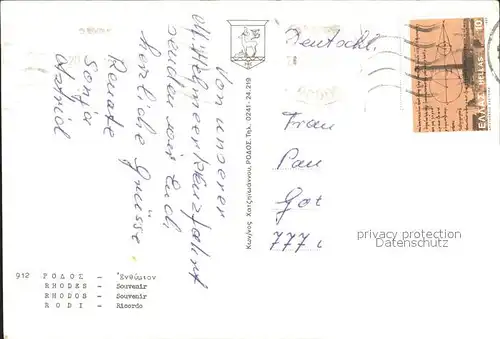 Von unserer
Mittelmeerkreuzfahrt
senden wir Euch
herzliche Grüsse
Renate
Sonja
Astrid
Κων/νος Χατζηιωάννου, ΡΟΔΟΣ, Τηλ. 0241-24.219
Deutschl.
Frau
Pau
Got
777
ΕΛΛΑΣ HELLAS
10
privacy protection
Datenschutz
912 ΡΟΔΟΣ - Ἐνθύμιον
RHODES - Souvenir
RHODOS - Souvenir
RODI - Ricordo